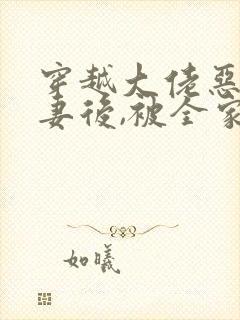 穿越大佬惡
妻後,被全家
如曦